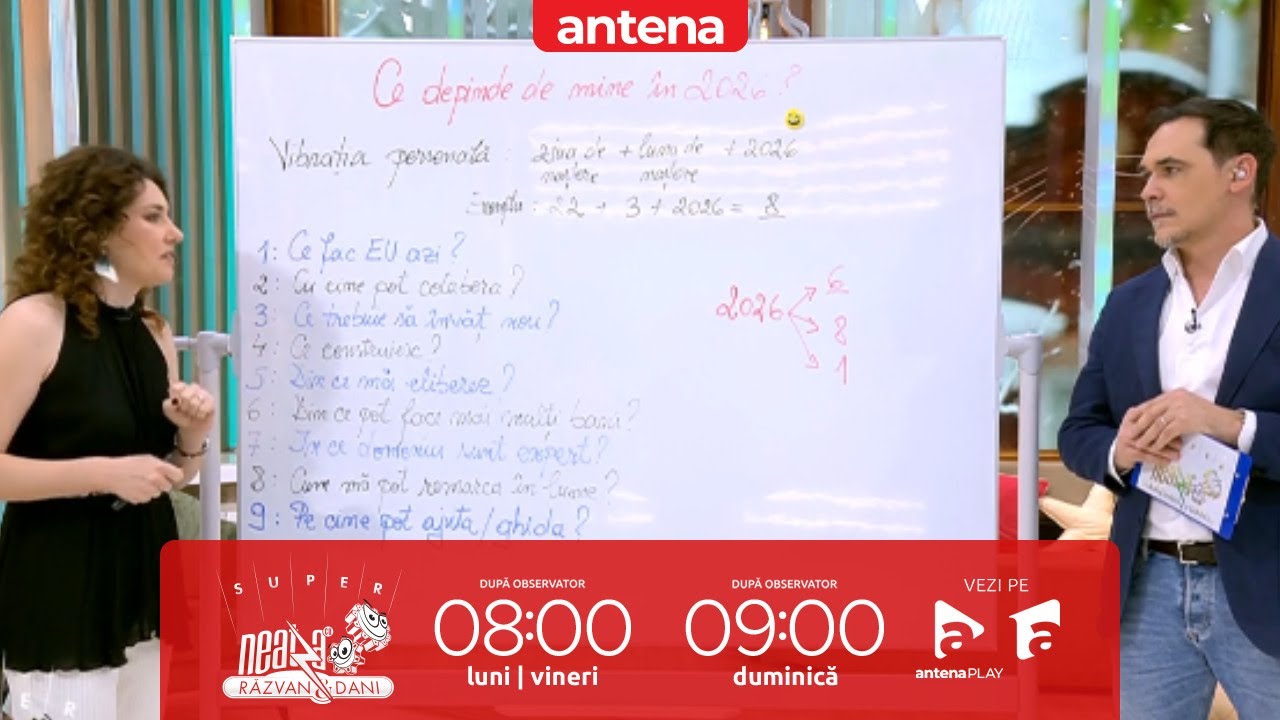 antena
Ce depinde de mine în 2026?
Vibrația personală : ziua de + luna de + 2026
naștere naștere
Exemplu : 22 + 3 + 2026 = 8
1: Ce fac EU azi?
2: Cu cine pot colabora?
3: Ce trebuie să învăț nou?
4: Ce construiesc?
5: Din ce mă eliberez?
6: Din ce pot face mai mulți bani?
7: În ce domeniu sunt expert?
8: Cum mă pot remarca în lume?
9: Pe cine pot ajuta/ghida?
2026
6
8
1
SUPER
neatza
RĂZVAN & DANI
DUPĂ OBSERVATOR
08:00
luni | vineri
DUPĂ OBSERVATOR
09:00
duminică
VEZI PE
a a
antena PLAY